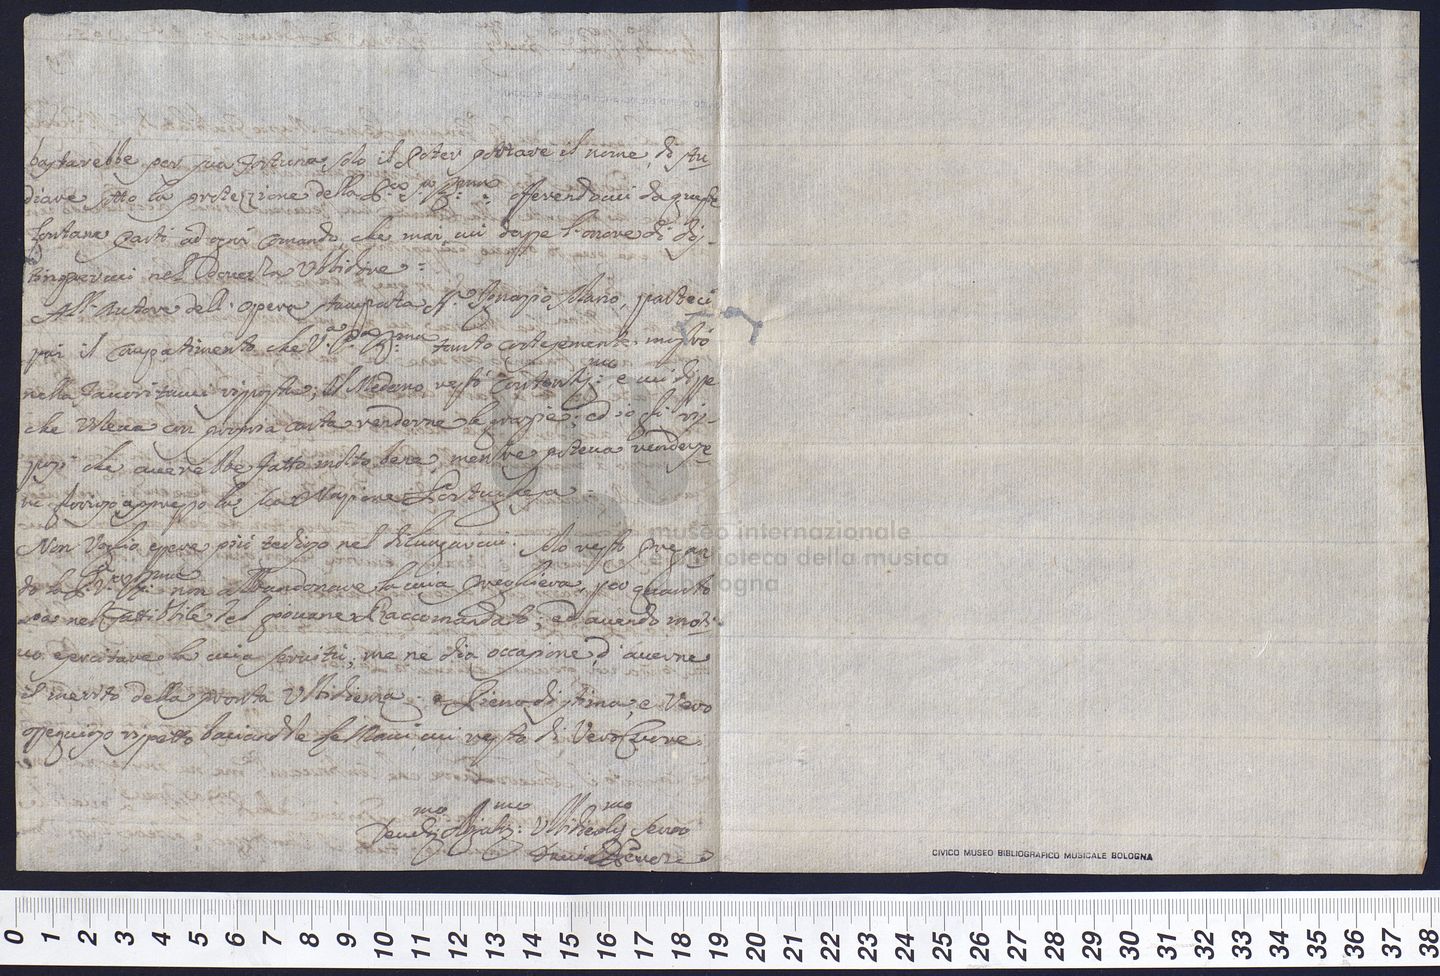 bastarebbe per sua fortuna, solo il poter portare il nome di stu-
diare sotto la protezzione della P. V. R.ma offerendomi da queste
lontane parti ad ogni comando, che mai mi dasse l'onore di dis-
tinguermi nel doverla ubbidire.
All'Autore dell'opera stampata Sig.r Ignazio parteci
pai il compatimento che V.a P.tà R.ma tanto cortesemente mostrò
nella favoritami risposta; Il Medemo restò contentiss.mo e mi disse
che voleva con propria carta rendere le grazie; ed io gli ris-
posi che averebbe fatto molto bene, mentre poteva rendersene
appresso la sua Nazione Portughesa.
Non voglio essere più tedioso nel dilungarmi. Solo resto pregan-
do la P.tà V.a R.ma non abbandonare la mia preghiera, per quanto
nel fattibile del giovane Raccomandato; ed avendo moti-
vo esercitare la mia servitù, me ne dia occasione d'averne
il merito della pronta ubbidienza e pieno di stima, e vero
ossequioso rispetto baciandole le Mani mi resto di vero cuore.
Devot.mo Obblig.mo Ubbidientis.mo Servo
David Perez
museo internazionale
e biblioteca della musica
di bologna
CIVICO MUSEO BIBLIOGRAFICO MUSICALE BOLOGNA
0 1 2 3 4 5 6 7 8 9 10 11 12 13 14 15 16 17 18 19 20 21 22 23 24 25 26 27 28 29 30 31 32 33 34 35 36 37 38